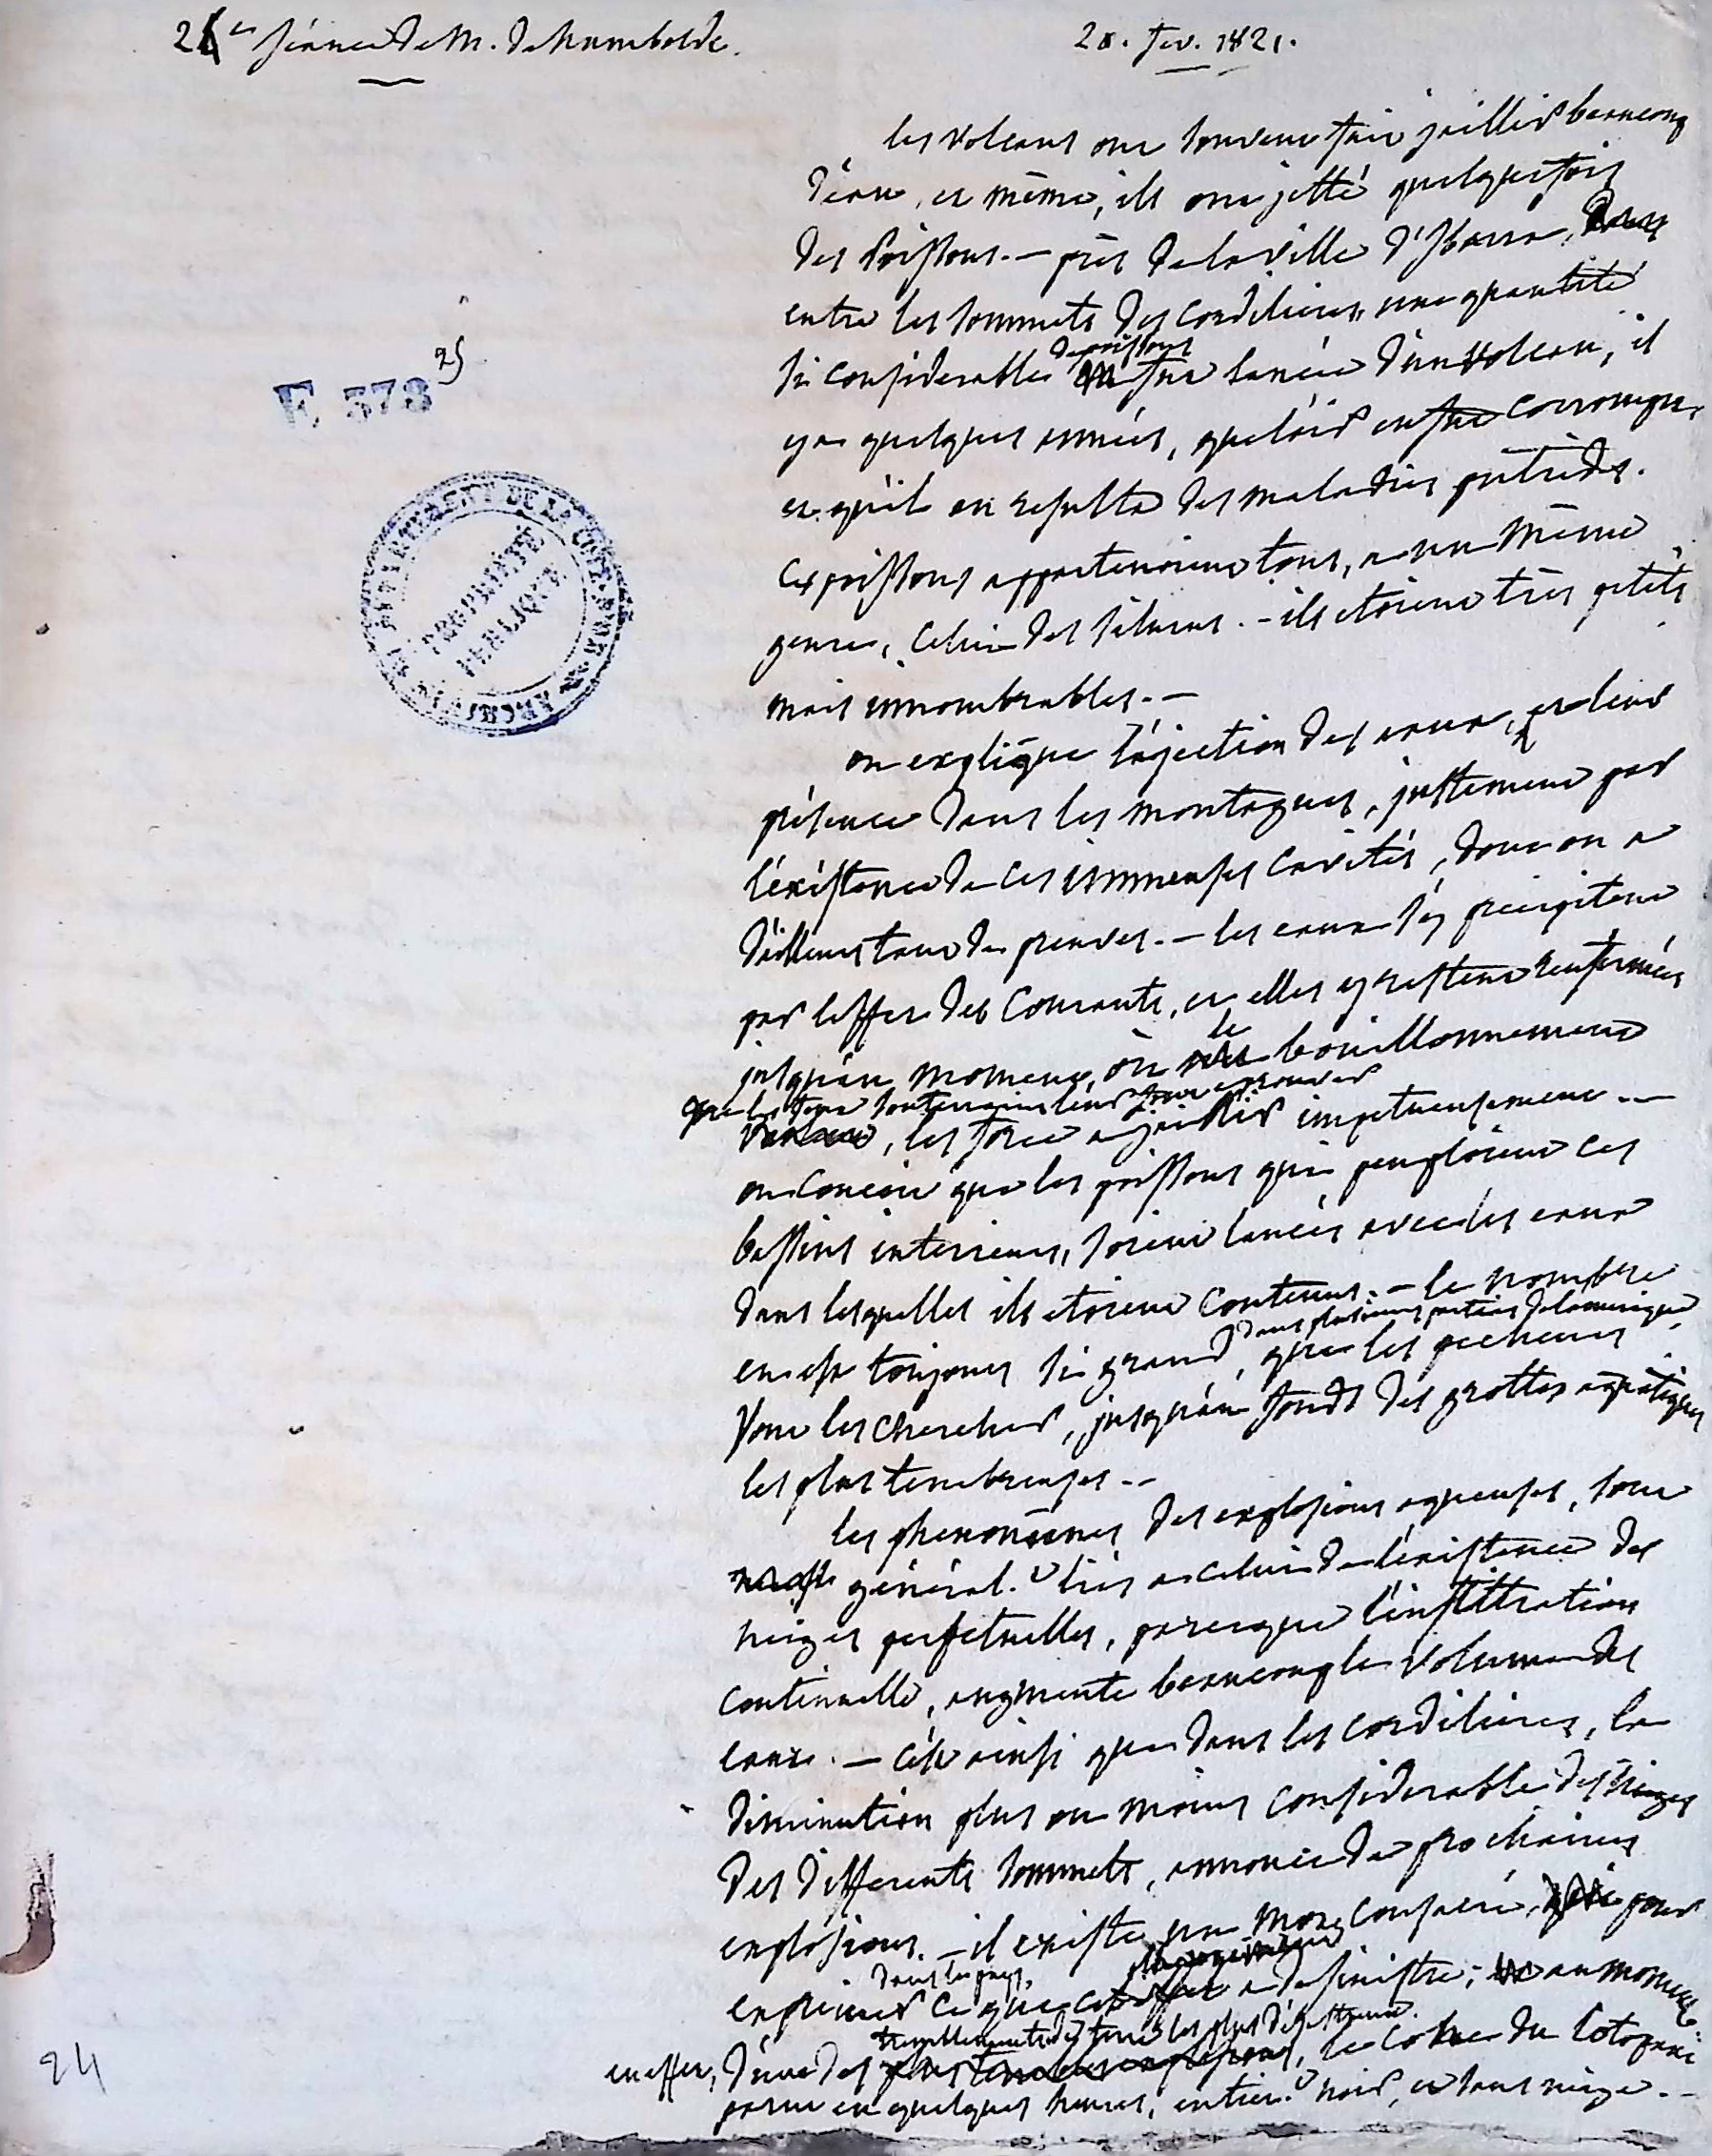 2e séance de M. de humboldt.
28. fev. 1821.
les volcans ont souvent fait jaillir beaucoup
d'eau, et même, ils ont jetté quelquefois
des poissons. — près de la ville d'Ibarra,
entre les sommets des cordilières, une quantité
si considerable de poissons fut lancée d'un volcan, il
y a quelques années, que l'air en fut corrompu,
et qu'il en resulta des maladies putrides.
Ces poissons appartenoient tous, a un même
genre, celui des silures. - ils etoient très petits
mais innombrables. —
on explique l'ejection des eaux, et leur
présence dans les montagnes, justement par
l'existence de ces immenses cavités, dont on a
d'ailleurs tant de preuves. — les eaux s'y precipitent
par l'effet des courants, et elles y restent renfermées
jusqu'au moment, où le bouillonnement
que les feux souterrains leur font eprouver
, les force a jaillir impetueusement. —
on conçoit que les poissons qui peuploient ces
bassins interieurs, soient lancés avec les eaux
dans lesquelles ils etoient contenus. — le nombre
dans plusieurs parties de l'amerique
en est toujours si grand, que les pecheurs
vont les chercher, jusqu'au fonds des grottes aquatiques
les plus tenebreuses. -
les phenomènes des explosions aqueuses, sont
général.t liés a celui de l'existence des
neiges perpetuelles, parceque l'infiltration
continuelle, augmente beaucoup le volume des
eaux. — c'est ainsi que dans les cordilières, la
diminution plus ou moins considerable des neiges
des differents sommets, annonce de prochaines
explosions. — il existe un mot consacré, pour
dans le pays,
exprimer ce que cet effet a de sinistre; au moment
tremblements de terre les plus désastreux.
en effet, d'un des , le cône du Cotopaxi
parut en quelques heures, entier.t noir, et sans neige. -
F 378 25
DEPARTEMENT DE LA COTE D'OR
ARCHIVES
PROPRIÉTÉ
PUBLIQUE
24